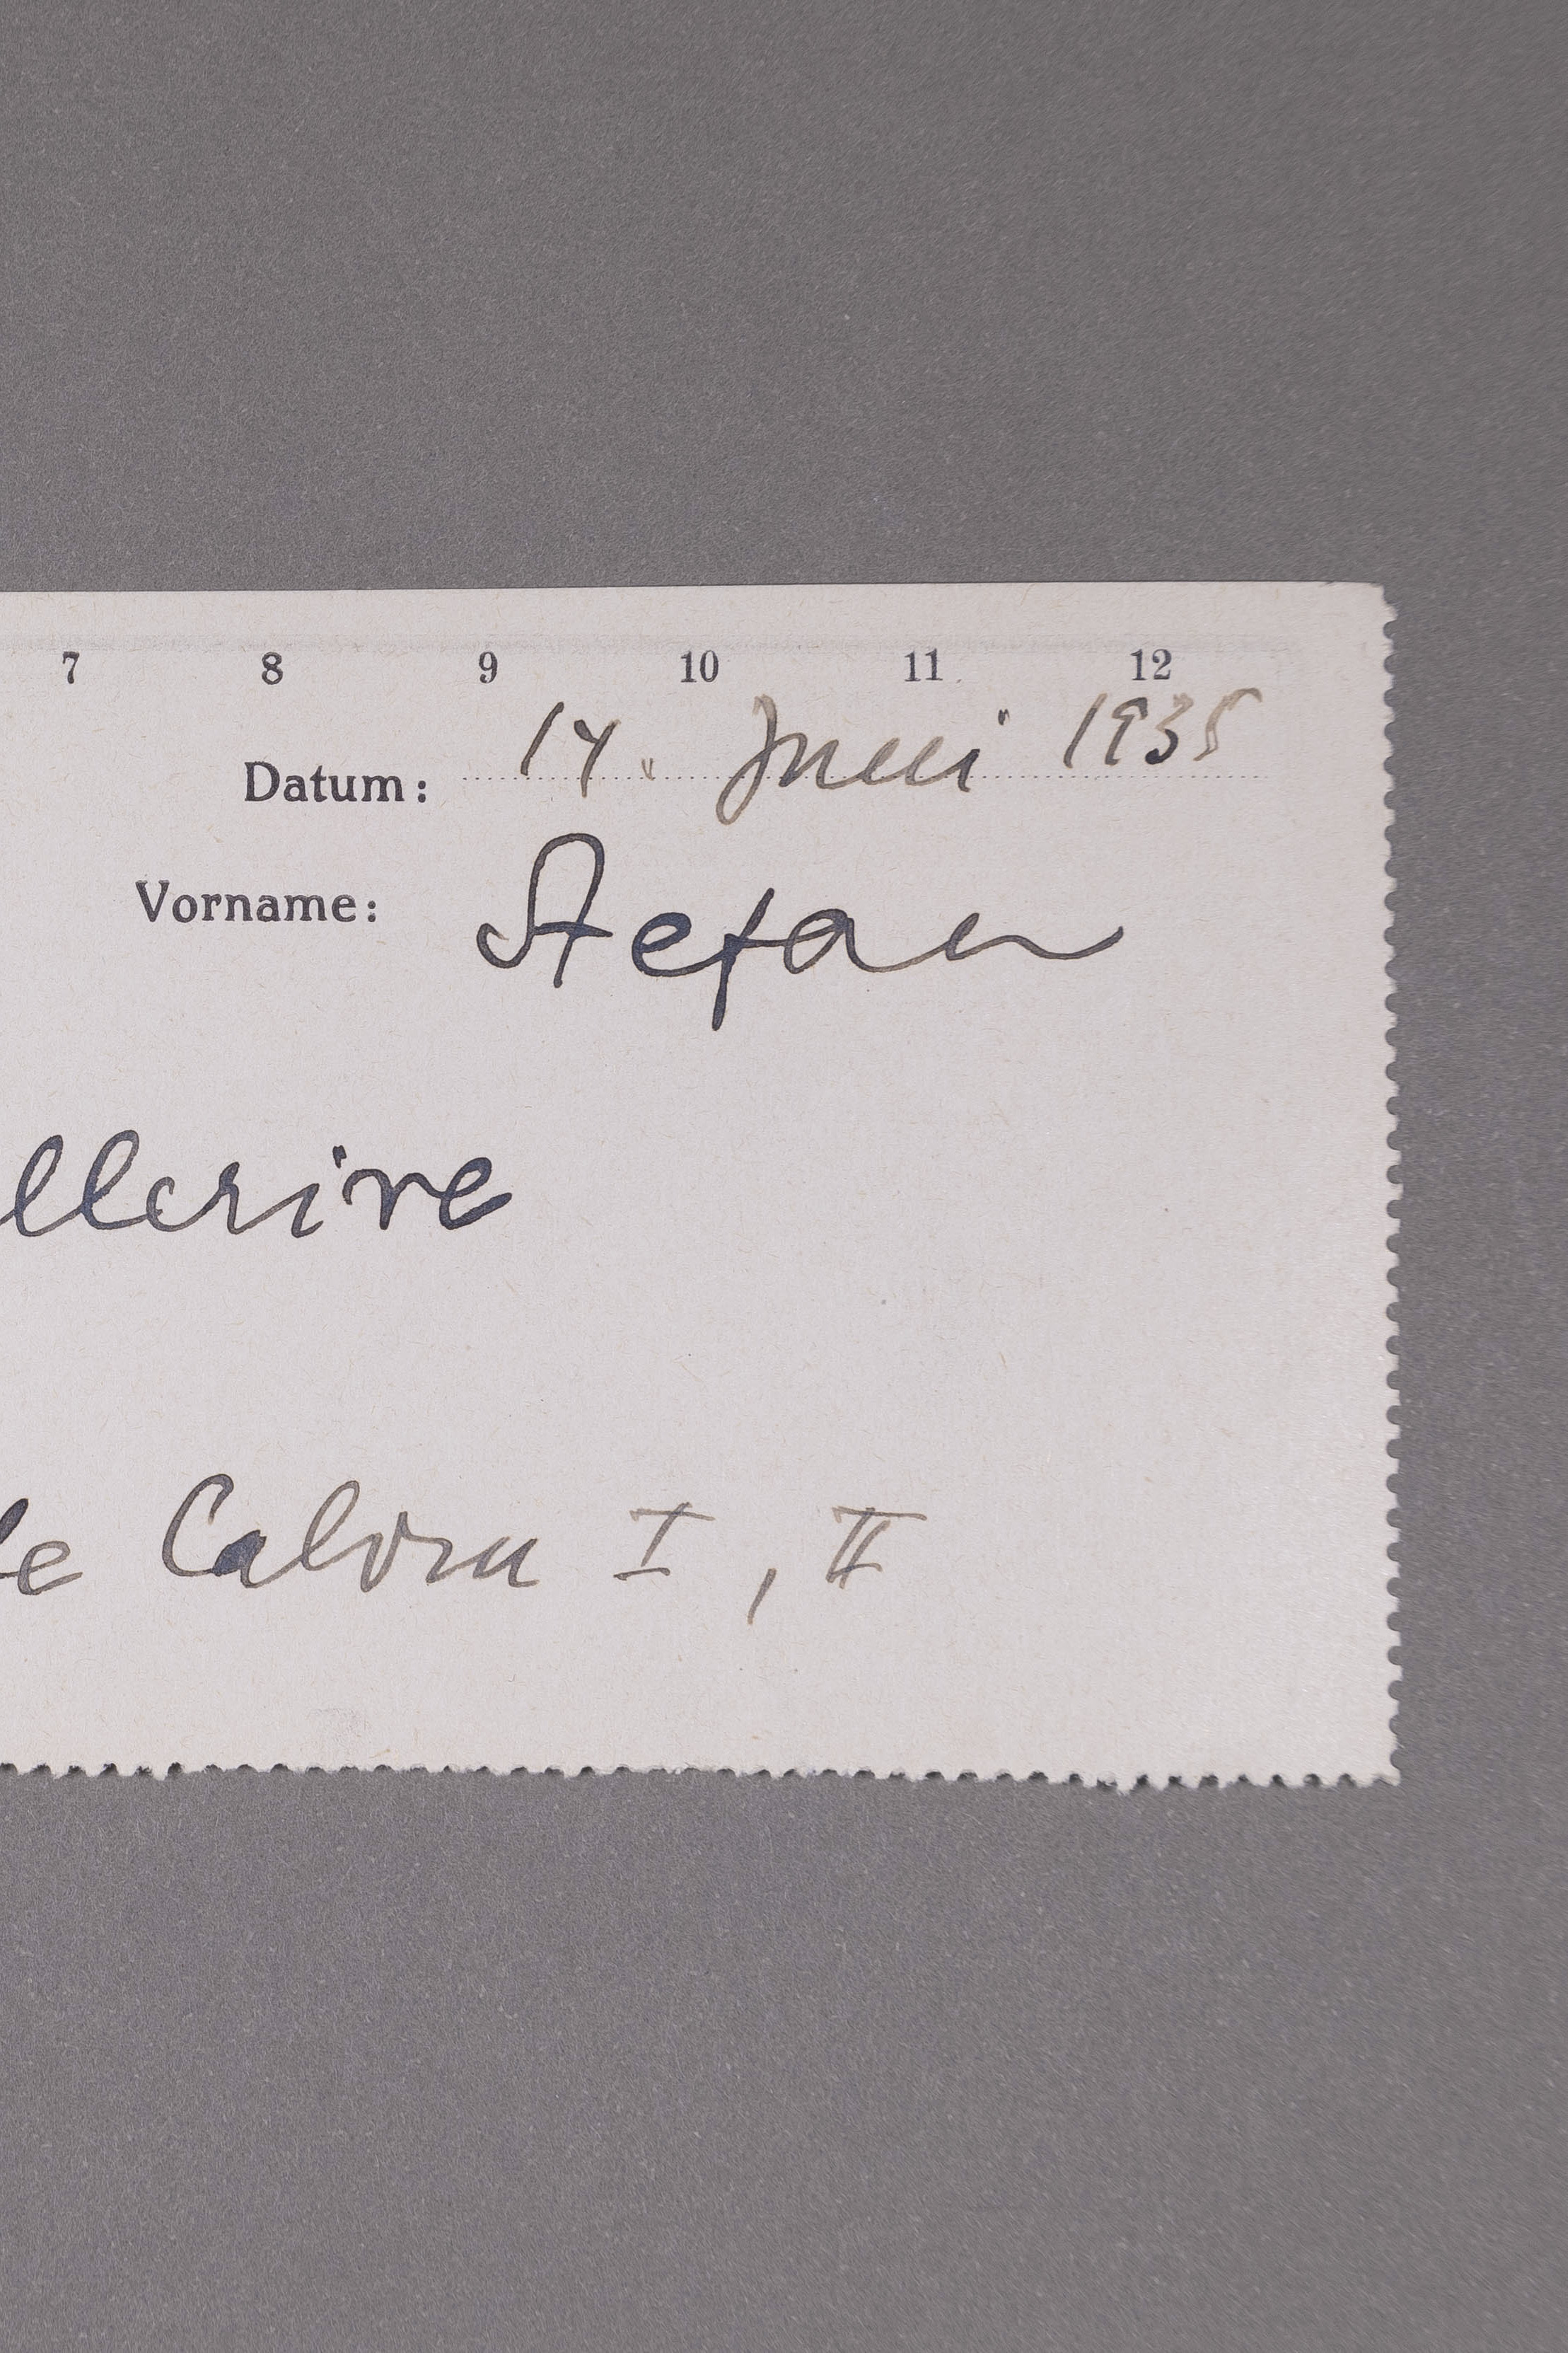 7 8 9 10 11 12
Datum: 14. Juni 1935
Vorname: Stefan
llerive
le Calvin I, II